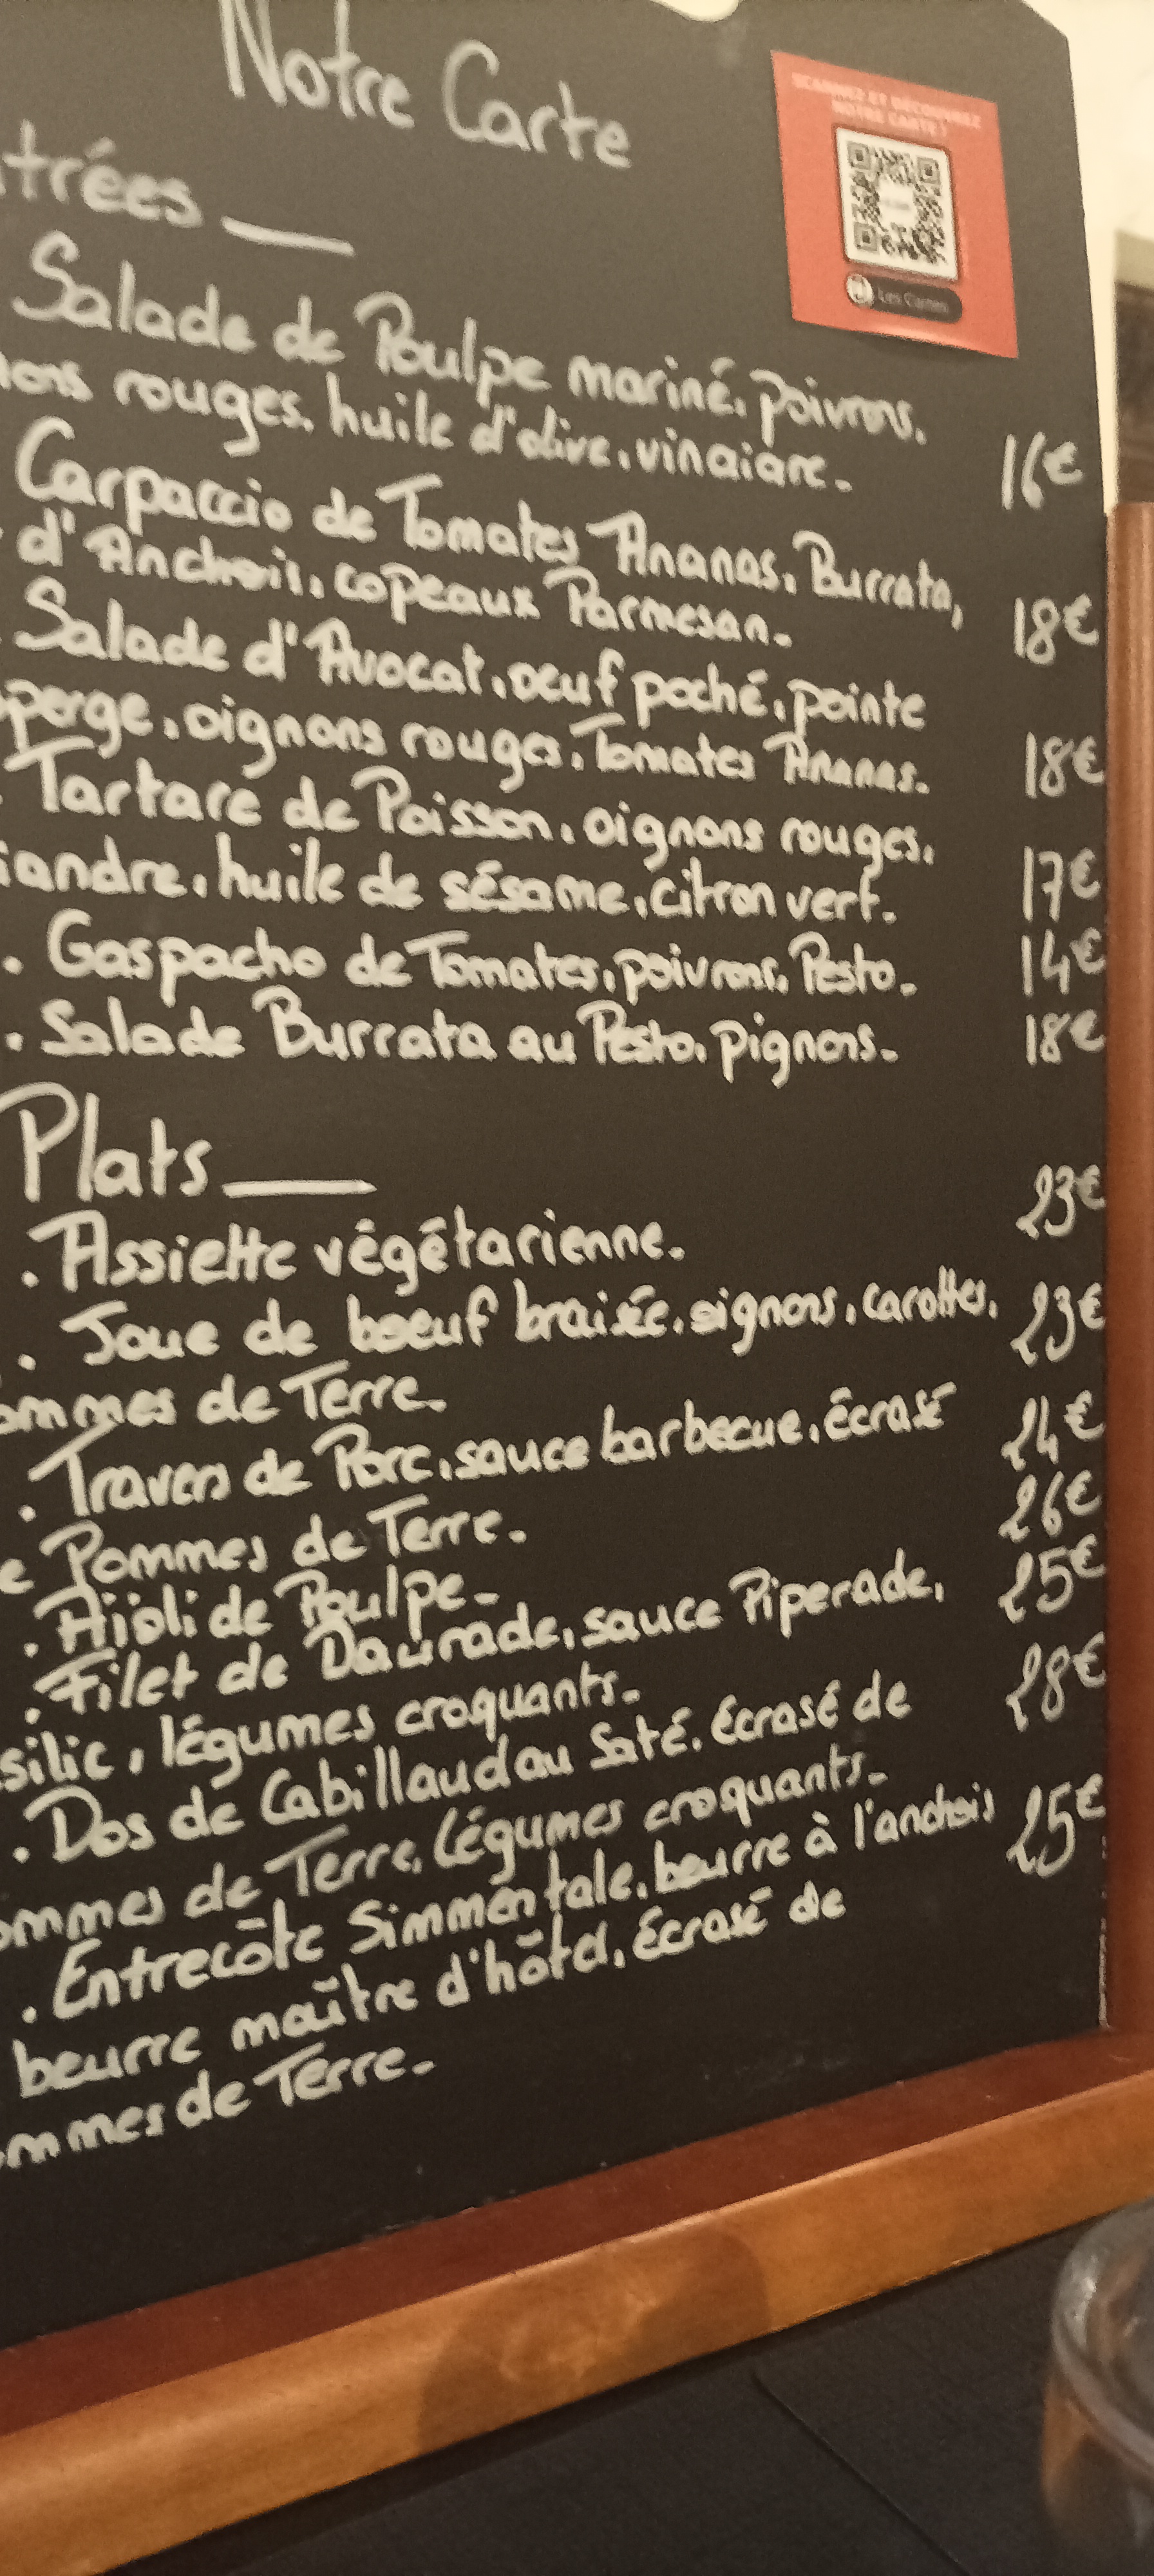 Notre Carte
SCANNEZ ET DÉCOUVREZ
NOTRE CARTE !
Les Cartes
trées
Salade de Poulpe mariné, poivrons,
ons rouges, huile d'olive, vinaigre. 16€
Carpaccio de Tomates Ananas, Burrata,
d'Anchois, copeaux Parmesan. 18€
Salade d'Avocat, oeuf poché, pointe
perge, oignons rouges, Tomates Ananas. 18€
Tartare de Poisson, oignons rouges,
iandre, huile de sésame, citron vert. 17€
. Gaspacho de Tomates, poivrons, Pesto. 14€
. Salade Burrata au Pesto, pignons. 18€
Plats
. Assiette végétarienne. 23€
. Joue de boeuf braisée, oignons, carottes, 23€
ommes de Terre.
. Travers de Porc, sauce barbecue, écrasé 24€
e Pommes de Terre.
. Aïoli de Poulpe. 26€
. Filet de Daurade, sauce Piperade, 25€
silic, légumes croquants.
. Dos de Cabillaud au Saté, Écrasé de 28€
ommes de Terre, Légumes croquants.
. Entrecôte Simmentale, beurre à l'anchois 25€
beurre maître d'hôtel, Écrasé de
mmes de Terre.